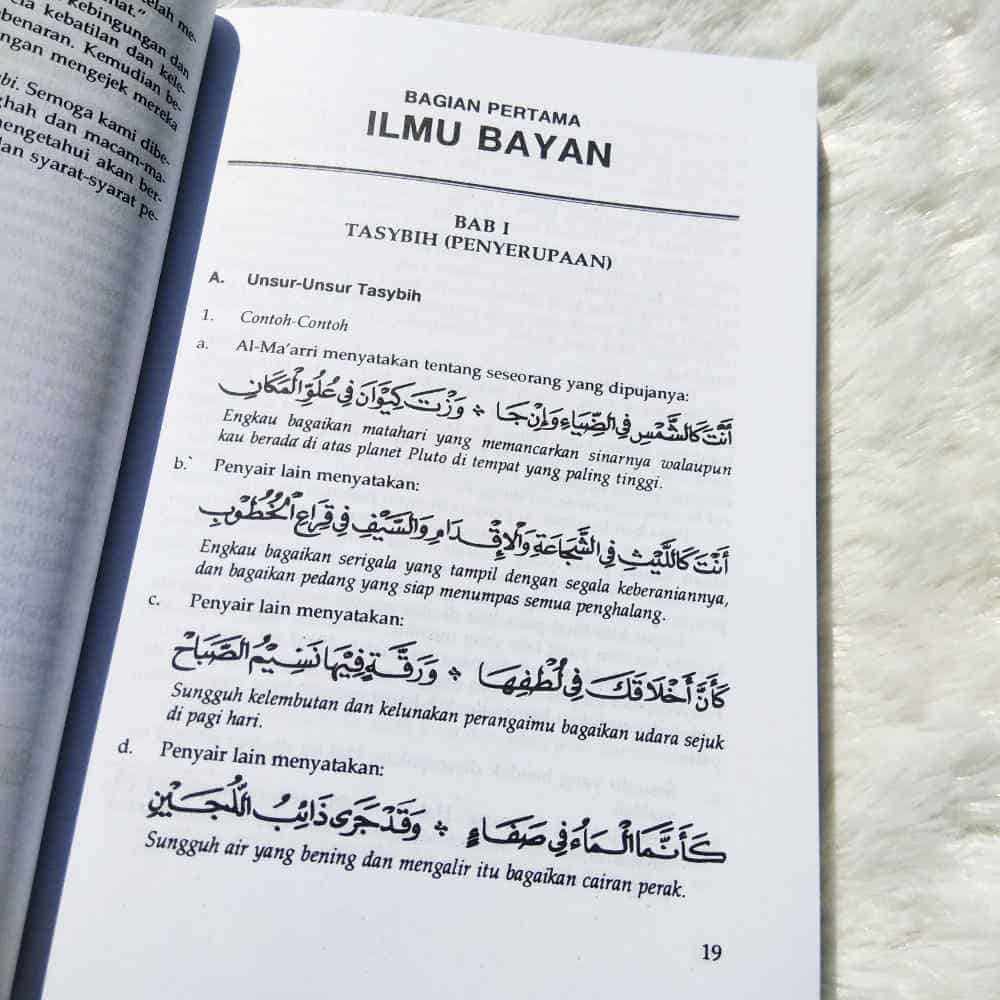 elah me-
nat."
kebingungan dan
ela kebatilan dan kele-
benaran. Kemudian be-
ngan mengejek mereka
bi. Semoga kami dibe-
ghah dan macam-ma-
mengetahui akan ber-
dan syarat-syarat pe-
BAGIAN PERTAMA
ILMU BAYAN
BAB I
TASYBIH (PENYERUPAAN)
A. Unsur-Unsur Tasybih
1. Contoh-Contoh
a. Al-Ma'arri menyatakan tentang seseorang yang dipujanya:
أَنْتَ كَالشَّمْسِ فِى الضِّيَاءِ وَإِنْ جَا * وَزْتَ كِيْوَانَ فِى عُلُوِّ الْمَكَانِ
Engkau bagaikan matahari yang memancarkan sinarnya walaupun
kau berada di atas planet Pluto di tempat yang paling tinggi.
b.` Penyair lain menyatakan:
أَنْتَ كَاللَّيْثِ فِى الشَّجَاعَةِ وَالْإِقْدَامِ وَالسَّيْفِ فِى قِرَاعِ الْخُطُوْبِ
Engkau bagaikan serigala yang tampil dengan segala keberaniannya,
dan bagaikan pedang yang siap menumpas semua penghalang.
c. Penyair lain menyatakan:
كَأَنَّ أَخْلَاقَكَ فِى لُطْفِهَا * وَرِقَّةٍ فِيْهَا نَسِيْمُ الصَّبَاحْ
Sungguh kelembutan dan kelunakan perangaimu bagaikan udara sejuk
di pagi hari.
d. Penyair lain menyatakan:
كَأَنَّمَا الْمَاءُ فِى صَفَاءٍ * وَقَدْ جَرَى ذَائِبُ اللُّجَيْنِ
Sungguh air yang bening dan mengalir itu bagaikan cairan perak.
19